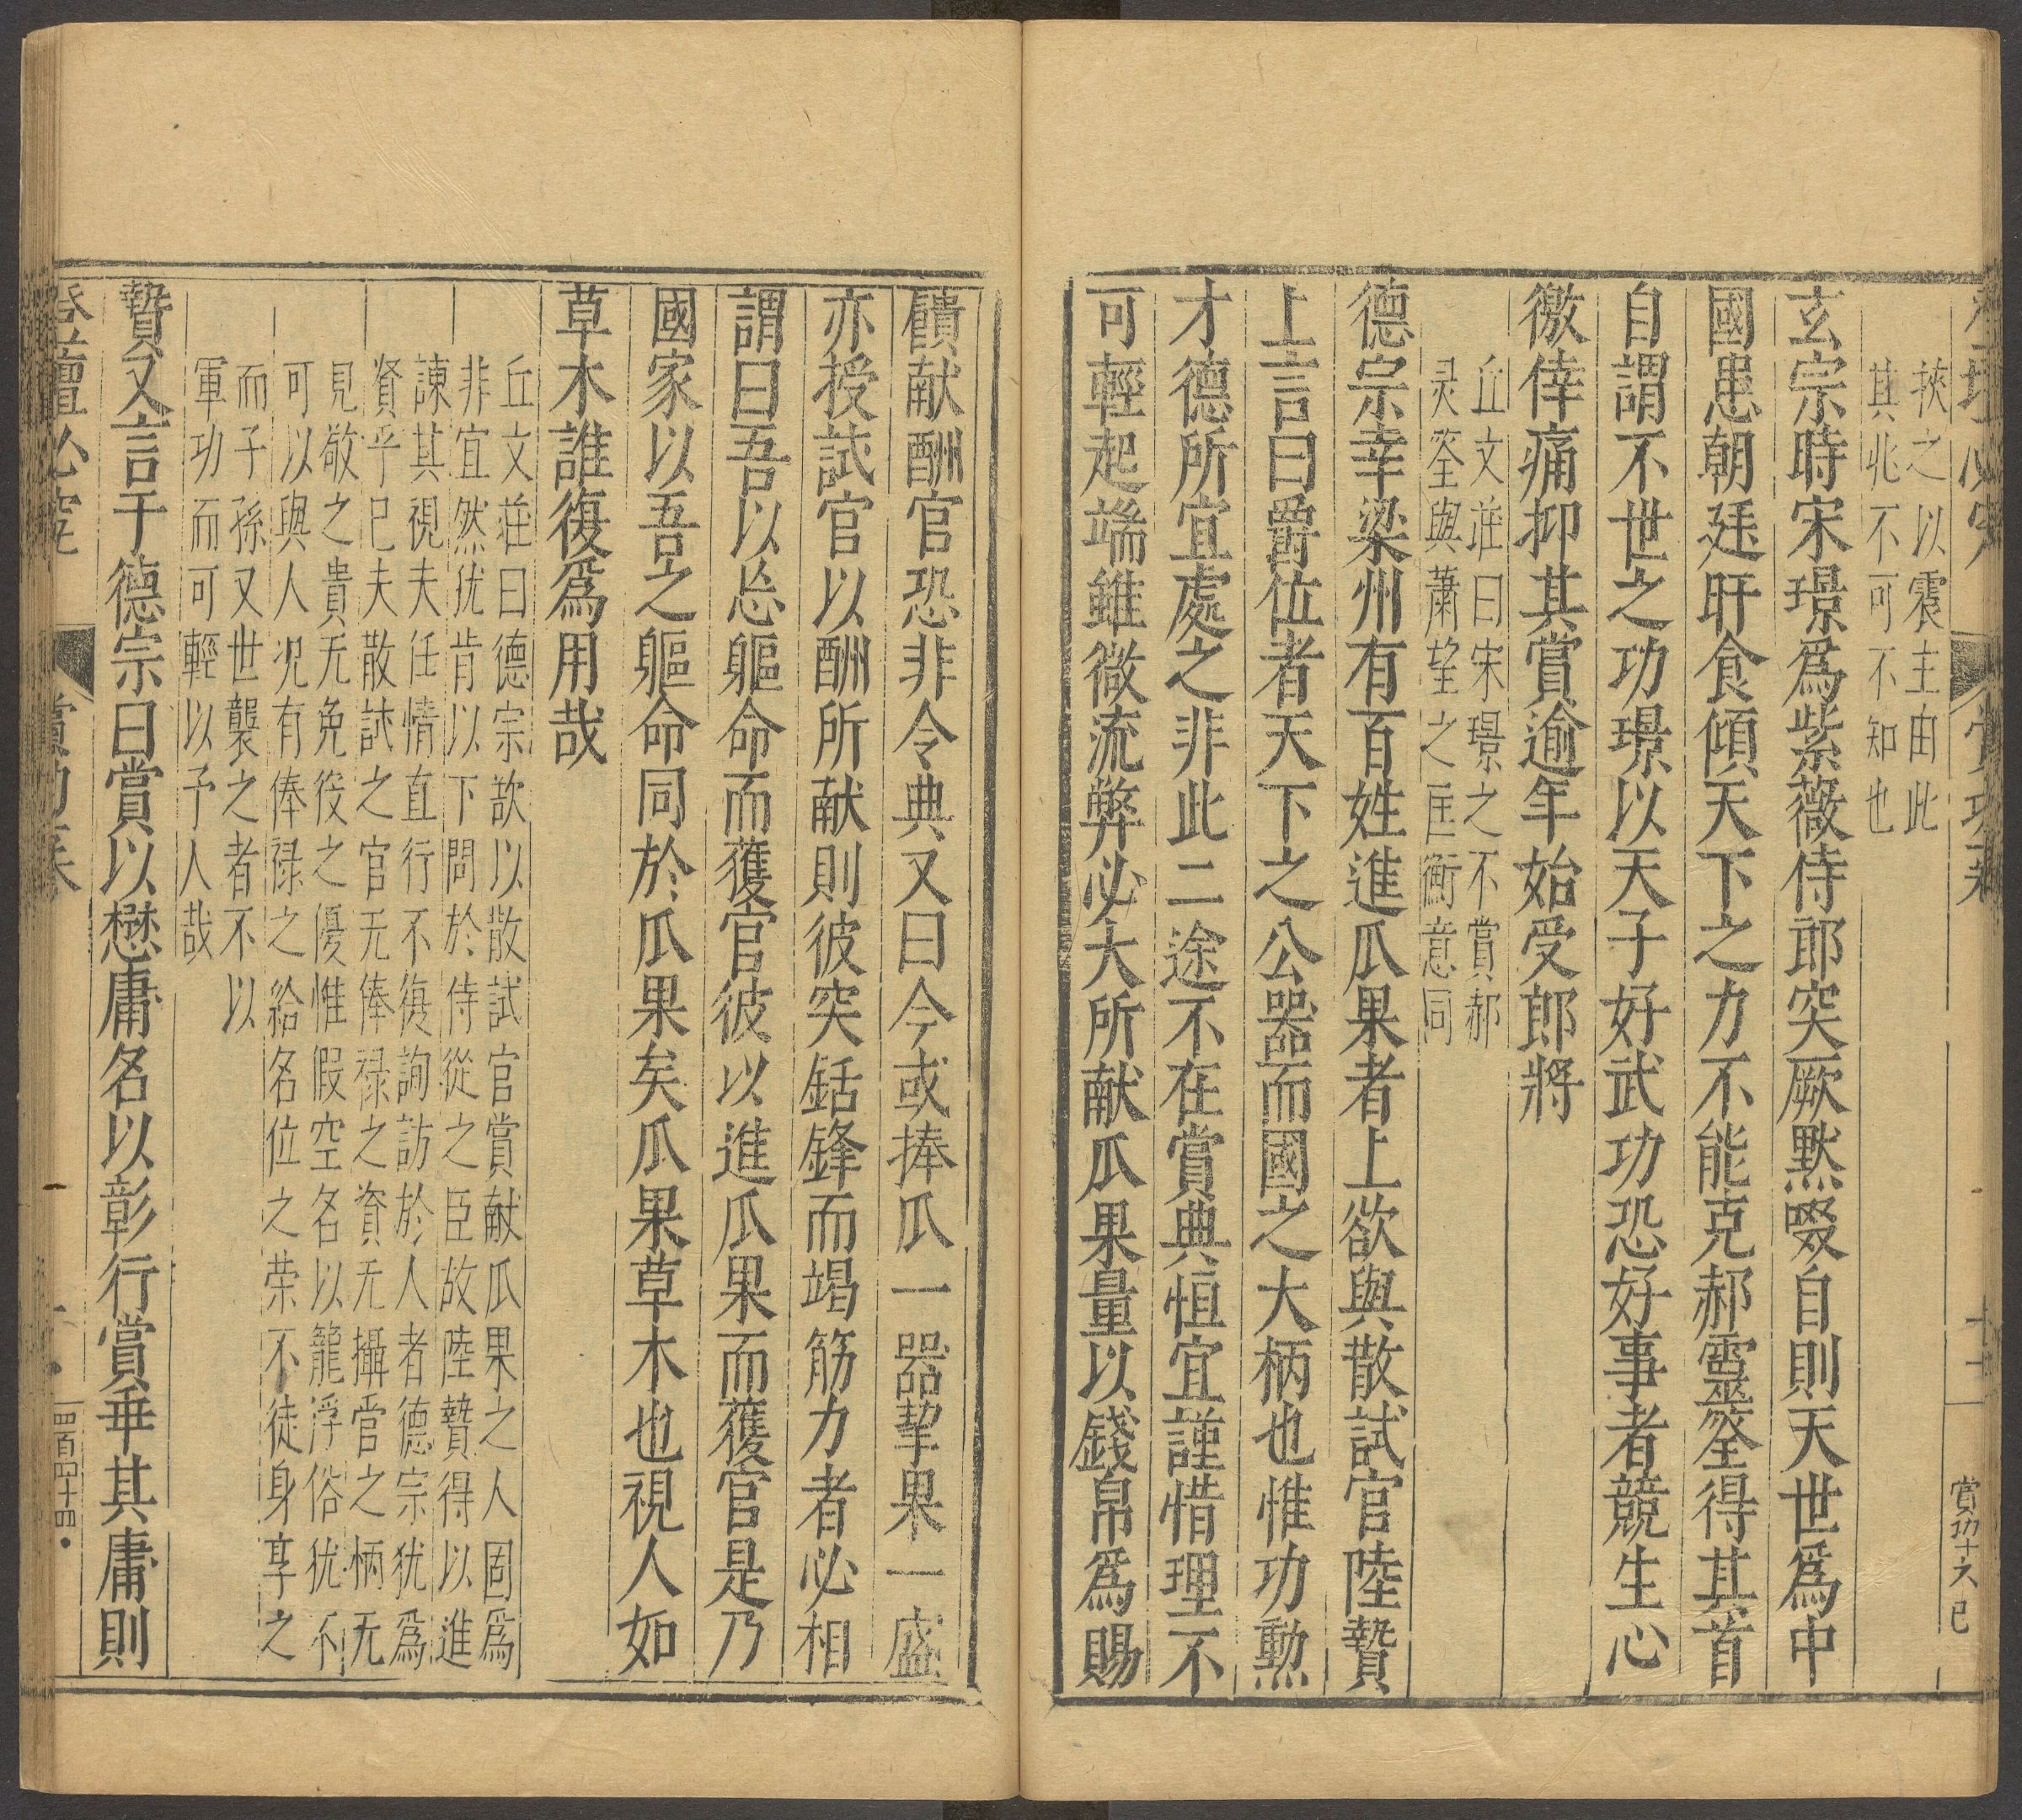 挾之以震主由此
其兆不可不知也
玄宗時宋璟爲紫薇侍郎突厥默啜自則天世爲中
國患朝廷旰食傾天下之力不能克郝靈筌得其首
自謂不世之功璟以天子好武功恐好事者競生心
徼倖痛抑其賞逾年始受郎將
丘文莊曰宋璟之不賞郝
灵筌與蕭望之匡衡意同
德宗幸梁州有百姓進瓜果者上欲與散試官陸贄
上言曰爵位者天下之公器而國之大柄也惟功勲
才德所宜處之非此二途不在賞典恒宜謹惜理不
可輕起端雖微流弊必大所献瓜果量以錢帛爲賜
賞功十六已
饋献酬官恐非令典又曰今或捧瓜一器挈果一盛
亦授試官以酬所献則彼突銛鋒而竭筋力者必相
謂曰吾以忘軀命而獲官彼以進瓜果而獲官是乃
國家以吾之軀命同於瓜果矣瓜果草木也視人如
草木誰復爲用哉
丘文莊曰德宗欲以散試官賞献瓜果之人固爲
非宜然犹肯以下問於侍從之臣故陸贄得以進
諫其視夫任情直行不復詢訪於人者德宗犹爲
賢乎已夫散試之官无俸禄之資无攝官之柄无
見敬之貴无免役之優惟假空名以籠浮俗犹不
可以與人况有俸禄之給名位之荣不徒身享之
而子孫又世襲之者不以
軍功而可輕以予人哉
贄又言于德宗曰賞以懋庸名以彰行賞乖其庸則
四百四十四